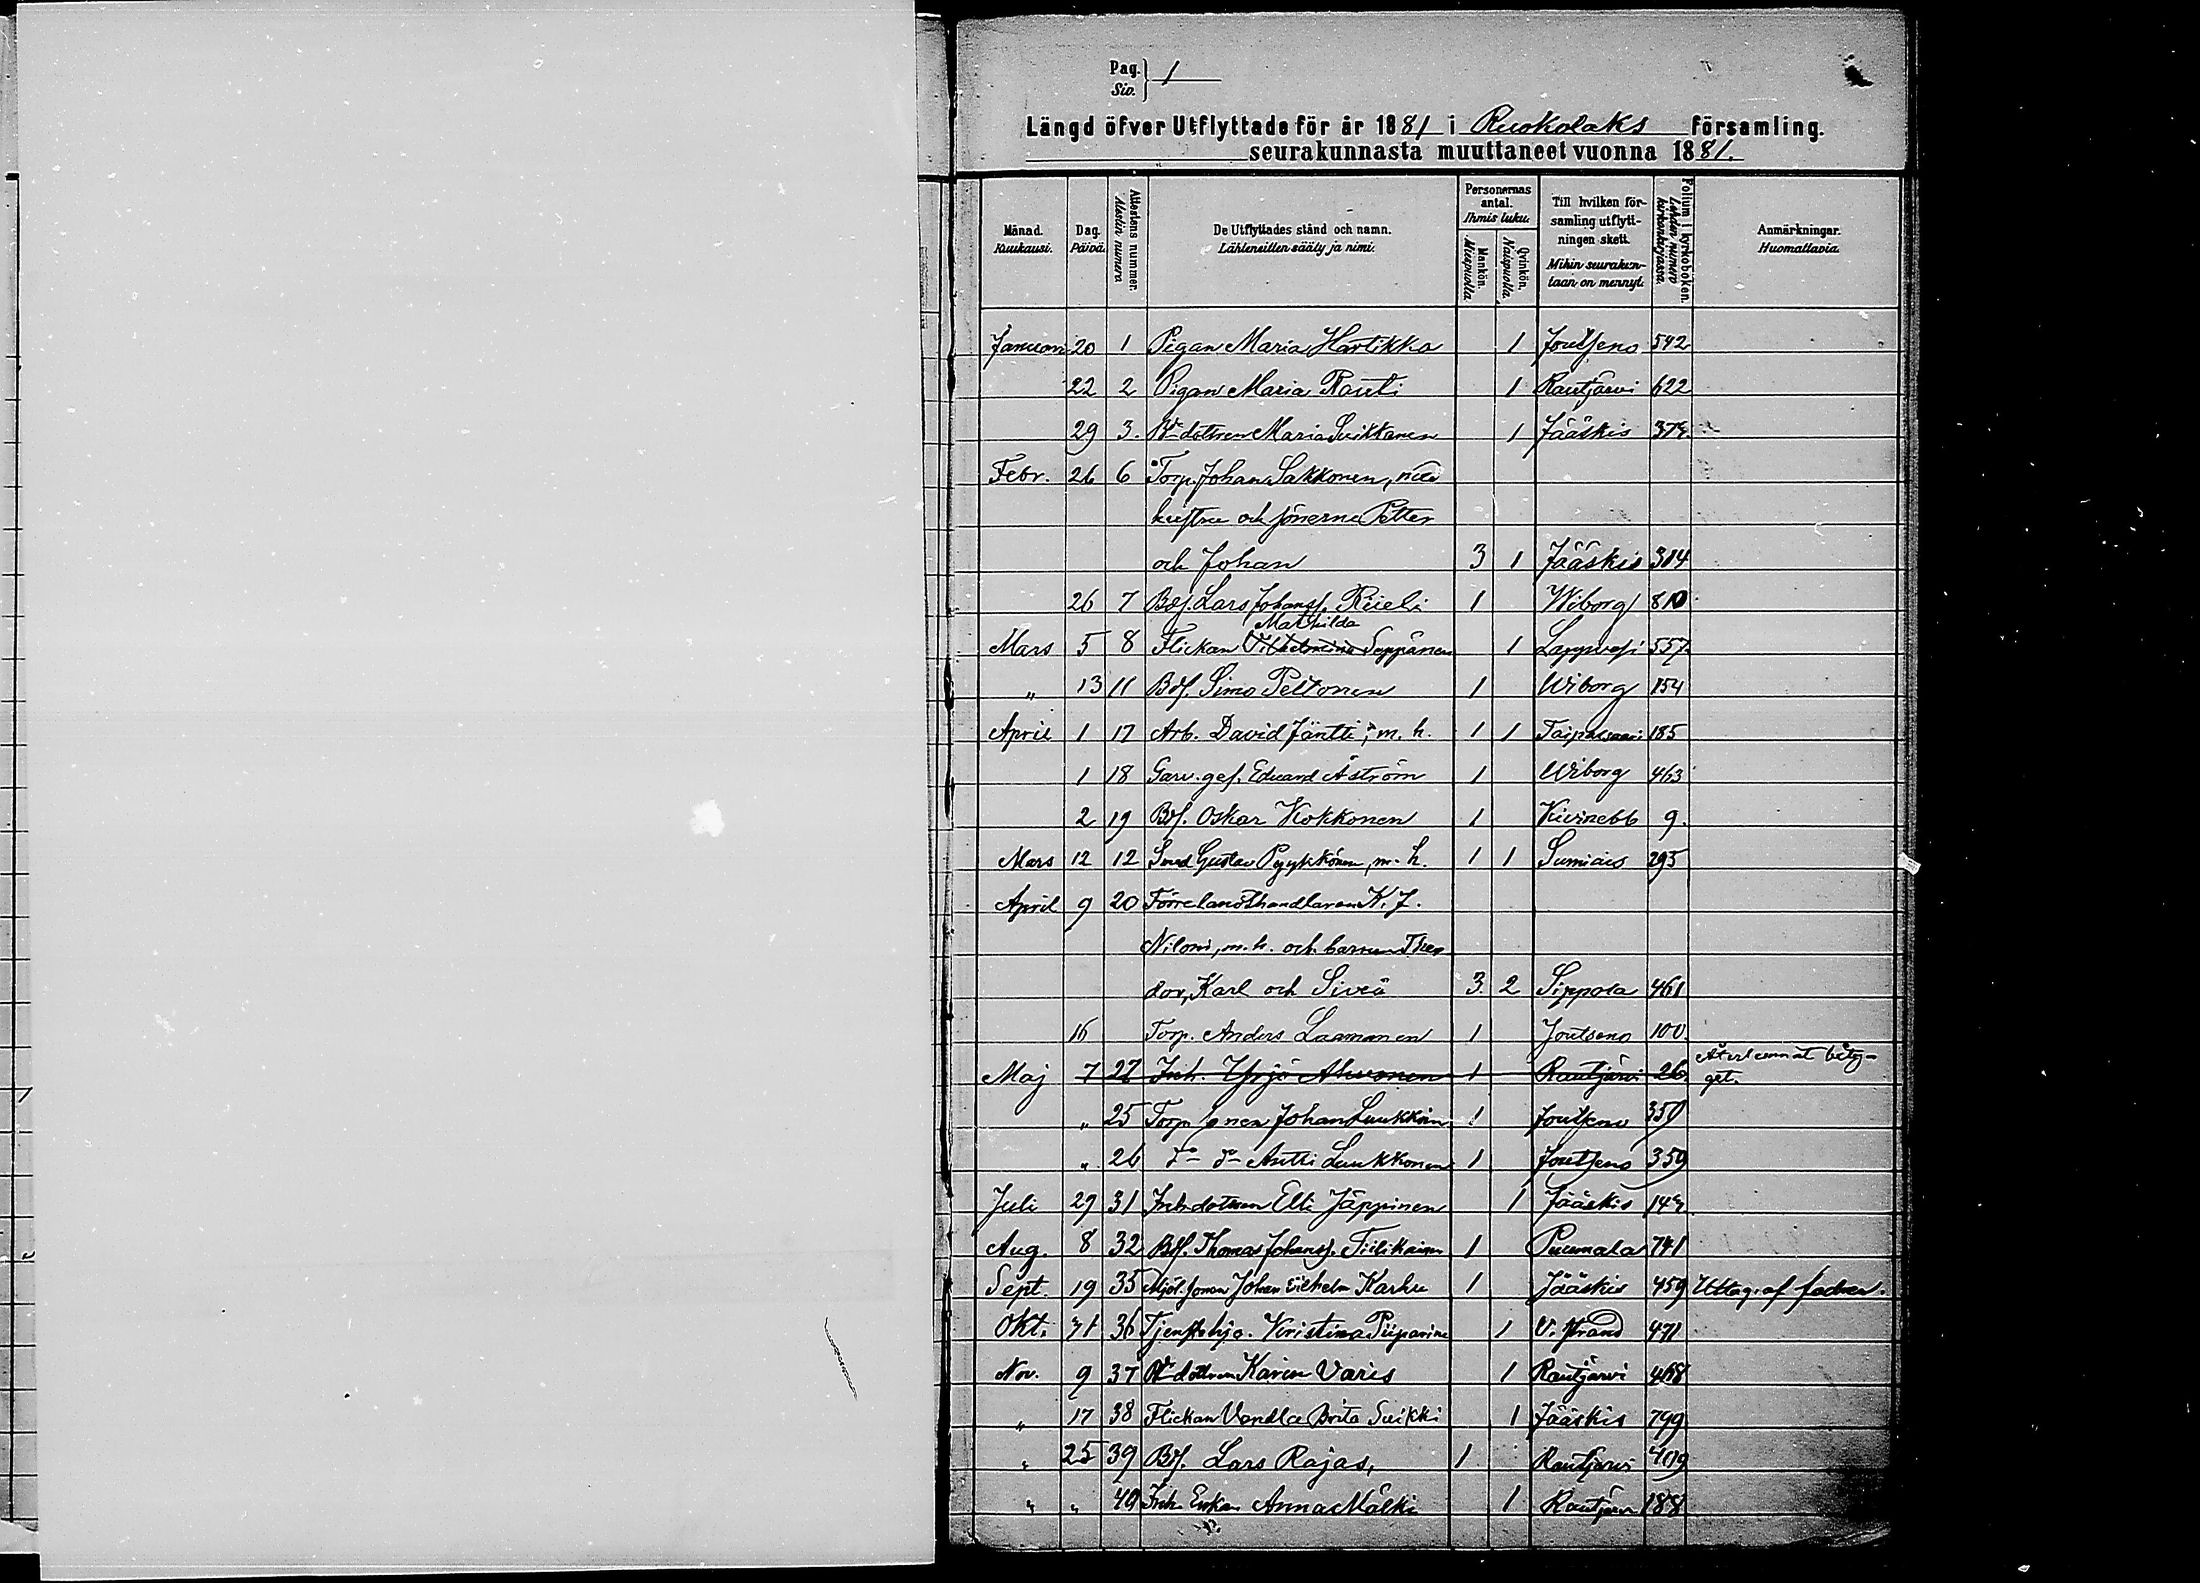 Pag.
Siv. } 1
Längd öfver Utflyttade för år 1881 i Ruokolaks församling.
seurakunnasta muuttaneet vuonna 1881.
Månad. Kuukausi.
Dag. Päivä.
Attestens nummer. Alestin numero
De Utflyttades stånd och namn. Lähteneitten sääty ja nimi.
Personernas antal. Ihmis luku.
Mankön. Miespuolia
Qvinkön. Naispuolia
Till hvilken församling utflyttningen skett. Mihin seurakuntaan on mennyt.
Folium i kyrkoboken. Lehden numero kirkonkirjassa.
Anmärkningar. Huomattavia.
Januari 20 1 Pigan Maria Hartikka 1 Joutseno 592
22 2 Pigan Maria Rauti 1 Rautjärvi 622
29 3. Bdedottren Maria Suikkanen 1 Jääskis
Febr. 26 6 Torp. Johan Sakkonen, med
hustru och sönerna Petter
och Johan 3 1 Jääskis 314
26 7 Bds. Lars Johanss. Riieli 1 Wiborg 810
Mathilda
Mars 5 8 Flickan Vilhelmina Seppänen 1 Lappvesi 557
„ 13 11 Bds. Simo Peltonen 1 Wiborg 154
April 1 17 Arb. David Jäntti, m. h. 1 1 Taipalsaari 185
1 18 Garv. ges. Eduard Åström 1 Wiborg 463
2 19 Bds. Oskar Kokkonen 1 Kivinebb 9.
Mars 12 12 Smed Gustav Pyykkönen, m. h. 1 1 Sumiais 295
April 9 20 K. J.
Niloni, m. h. och barnen Theo
dor, Karl och Siveä 3. 2 Sippola 461
16 Torp. Anders Laamanen 1 Joutseno 100.
Maj 7 27 Inh. Yrjö Ahvonen 1 Rautjärvi 26. Återlemnat betyg-
get.
„ 25 Torp. sonen Johan Luukkonen 1 Joutseno 351
„ 26 Do do Antti Luukkonen 1 Joutseno 359
Juli 29 31 Inh. dottren Elli Jäppinen 1 Jääskis
Aug. 8 32 Bds. Thomas Johanss. Tiilikainen 1 Puumala 741
Sept. 19 35 Mjöl. sonen Johan Vilhelm Karhu 1 Jääskis 459 Uttag. af fadren.
Okt. 31 36 Tjensthjo. Kristina Piiparinen 1 V. strand 471
Nov. 9 37 Bde dottren Karin Varis 1 Rautjärvi 468
„ 17 38 Flickan Vendla Brita Suikki 1 Jääskis 799
„ 25 39 Bds. Lars Rajas, 1 Rautjärvi 409
„ „ 40 Inh. Enkan Anna Mälki 1 Rautjärvi 188